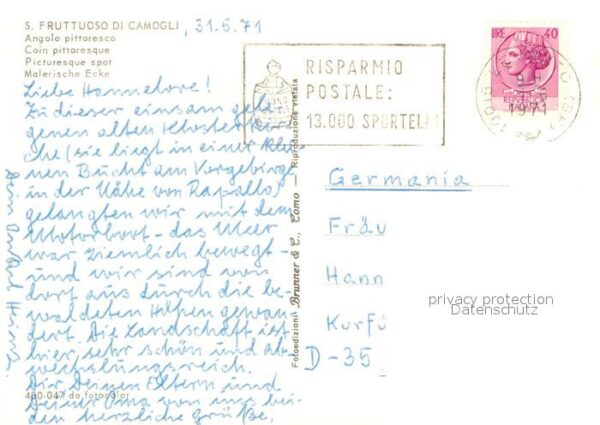 S. FRUTTUOSO DI CAMOGLI , 31.5.71
Angolo pittoresco
Coin pittoresque
Picturesque spot
Malerische Ecke
Liebe Hannelore!
Zu dieser einsam gele-
genen alten Klosterkir-
che (sie liegt in einer klei-
nen Bucht am Vorgebirge
in der Nähe von Rapallo)
gelangten wir mit dem
Motorboot - das Meer
war ziemlich bewegt -
und wir sind von
dort aus durch die be-
waldeten Höhen gewan-
dert. Die Landschaft ist
hier sehr schön und ab-
wechslungsreich.
Dir Deinen Eltern und
Deiner Oma von uns bei-
den herzliche Grüße,
Dein Onkel Heinz
480-047 da fotocolor
Fotoedizioni Brunner & C., Como — Riproduzione vietata
RISPARMIO
POSTALE:
13.000 SPORTELLI
LIRE 40
1971
Germania
Fräu
Hann
Kurfü
D-35
privacy protection
Datenschutz